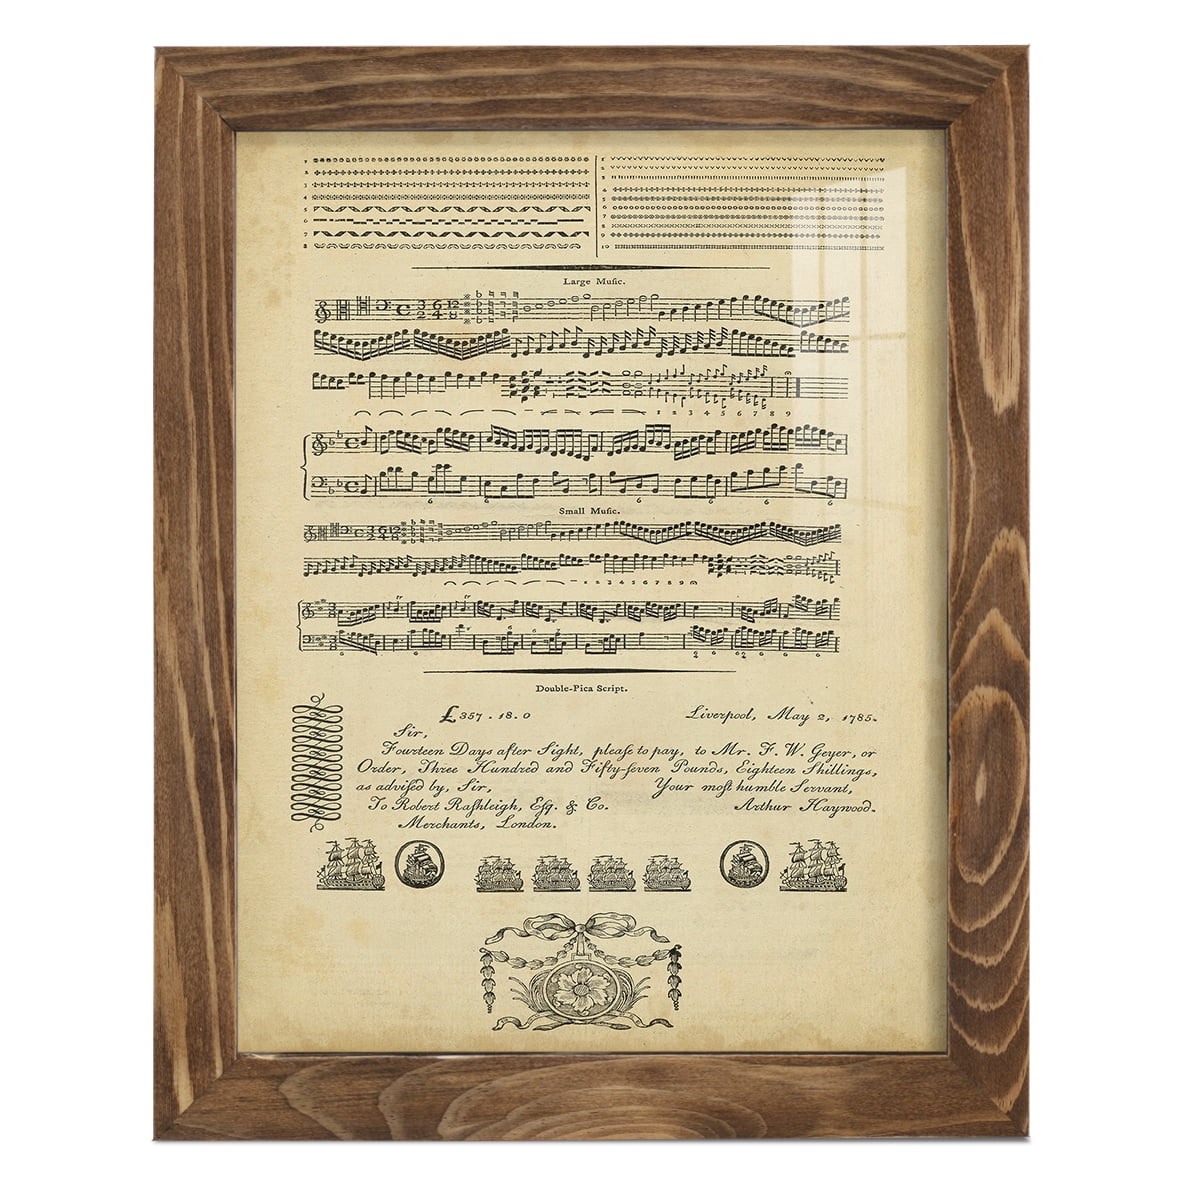 1
2
3
4
5
6
7
8
1
2
3
4
5
6
7
8
9
10
Large Muſic.
1 2 3 4 5 6 7 8 9
6 6 6 6
Small Muſic.
1 2 3 4 5 6 7 8 9
Double-Pica Script.
£357.18.0 Liverpool, May 2, 1785.
Sir,
Fourteen Days after Sight, pleaſe to pay, to Mr. F. W. Geyer, or
Order, Three Hundred and Fifty-ſeven Pounds, Eighteen Shillings,
as adviſed by, Sir, Your moſt humble Servant,
To Robert Raſhleigh, Eſq. & Co. Arthur Haywood.
Merchants, London.